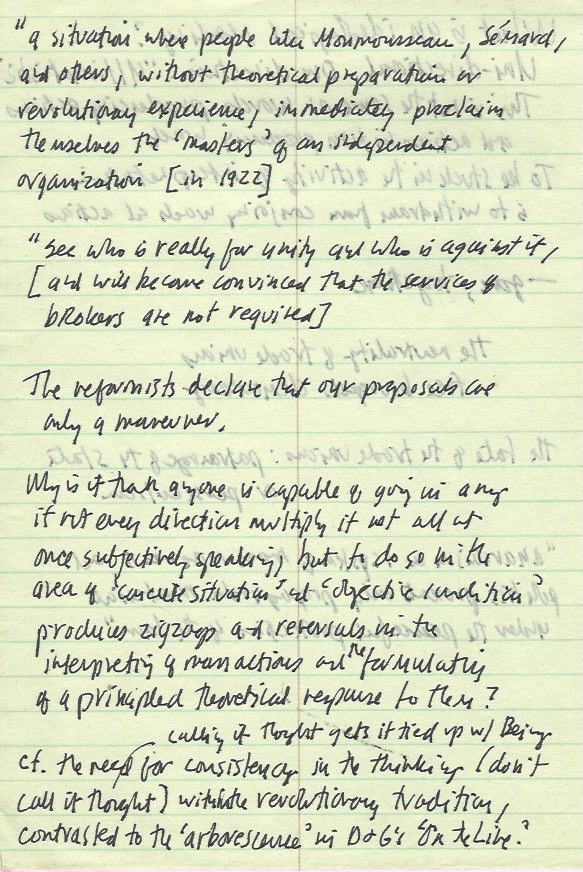 "a situation where people like Monmousseau, Sémard,
and others, without theoretical preparation or
revolutionary experience, immediately proclaim
themselves the 'masters' of an independent
organization [in 1922]
"see who is really for unity and who is against it,
[and will become convinced that the services of
brokers are not required]
The reformists declare that our proposals are
only a maneuver.
Why is it that anyone is capable of going in any
if not every direction multiply if not all at
once subjectively speaking, but to do so in the
area of 'concrete situation' and 'objective condition'
produces zigzags and reversals in the
interpreting of mass actions and the formulating
of a principled theoretical response to them?
calling it thought gets it tied up w/ Being
cf. the need for consistency in the thinking (don't
call it thought) within the revolutionary tradition,
contrasted to the 'arborescence' in D+G's 'On the Line.'